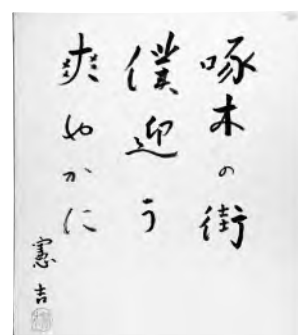 啄木の街
僕迎う
爽やかに
憲吉